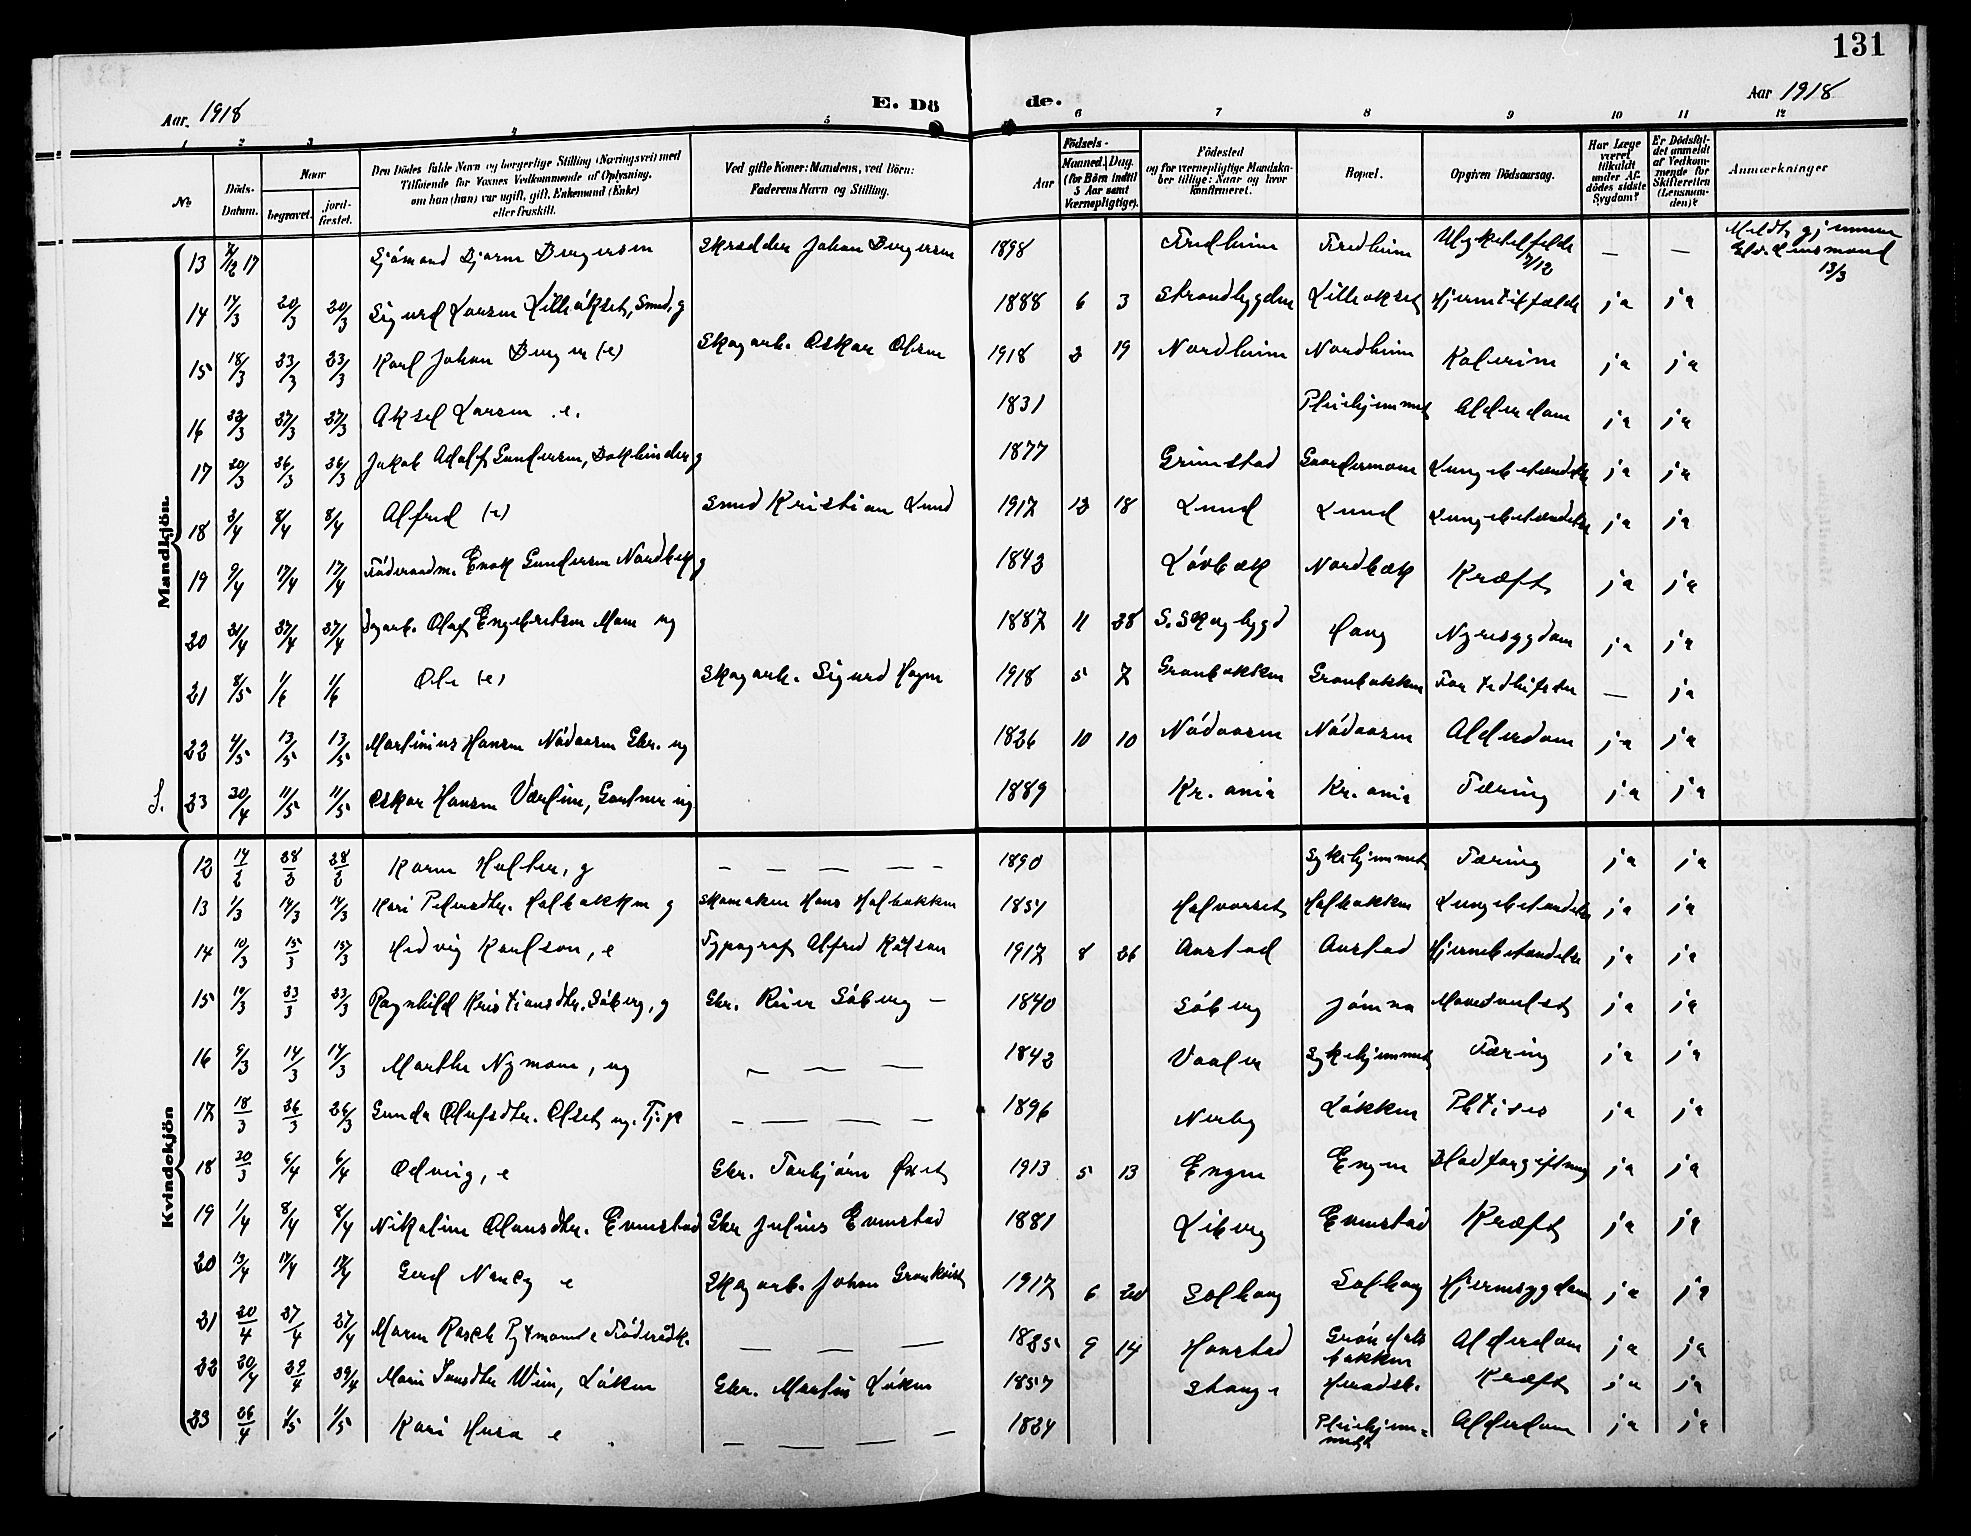 131
Aar 1918
E. Dö
de.
Aar 1918
1 2 3 4 5 6 7 8 9 10 11 12
№
Döds-Datum.
Naar
begravet.
jordfæstet.
Den Dödes fulde Navn og borgerlige Stilling (Næringsvei) med
Tilføiende for Voxnes Vedkommende af Oplysning,
om han (hun) var ugift, gift, Enkemand (Enke)
eller fraskilt.
Ved gifte Koner: Mandens, ved Börn:
Faderens Navn og Stilling.
Födsels-
Aar
Maaned. Dag.
(for Börn indtil
5 Aar samt
Værnepligtige).
Födested
og for værnepligtige Mandskaber tillige: Naar og hvor konfirmeret.
Bopæl.
Opgiven Dödsaarsag.
Har Læge været tilkaldt under Afdödes sidste Sygdom?
Er Dödsfaldet anmeldt af Vedkommende for Skifteretten (Lensmanden)?
Anmærkninger
Mandkjön
13 12 17 Sjömand Bjarne Bergersen Skrædder Johan Bergersen 1898 Fredheim Fredheim 7/12 — — 13/3
14 17/3 20/3 20/3 Sigurd Larsen Lilleåkset, Smed, g 1888 6 3 Strandbygden Lilleåkset ja ja
15 18/3 23/3 23/3 Karl Johan Berger (e) Skogarb. Oskar Olsen 1918 2 19 Nordheim Nordheim ja ja
16 22/3 27/3 27/3 Aksel Larsen e. 1831 Pleiehjemmet Alderdom ja ja
17 20/3 26/3 26/3 Jakob Adolf Gundersen, Bokbinder g 1877 Grimstad Gaardermoen Lungebetændelse ja ja
18 3/4 8/4 8/4 Alfred (e) Smed Kristian Lund 1917 12 18 Lund Lund Lungebetændelse ja ja
19 9/4 17/4 17/4 Föderaadm. Enok Gundersen Nordbæk g 1843 Lövbæk Nordbæk Kræft ja ja
20 21/4 27/4 27/4 Olaf Engebretsen Moen ug 1887 11 28 S. Skogbygd Haug Nyresygdom ja ja
21 8/5 1/6 1/6 Ole (e) Skogarb. Sigurd Hagen 1918 5 7 Granbakken Granbakken For tidlig födsel — ja
22 4/5 13/5 13/5 Martinius Hansen Nödaasen Gbr. ug 1826 10 10 Nödaasen Nödaasen Alderdom ja ja
S. 23 30/4 11/5 11/5 Oskar Hansen Værlien, Gartner ug 1889 Kr.ania Kr.ania Tæring ja ja
Kvindekjön
12 14/2 28/2 28/2 Karen Holter, g — — — — 1890 Sykehjemmet Tæring ja ja
13 1/3 14/3 14/3 Kari Pedersdtr. Holbakken g Skomaker Hans Holbakken 1854 Halvorset Holbakken Lungebetændelse ja ja
14 10/3 15/3 15/3 Hedvig Karlson, e Typograf Alfred Karlson 1917 8 26 Aarstad Aarstad Hjernebetændelse ja ja
15 19/3 23/3 23/3 Ragnhild Kristiansdtr. Söberg, g Gbr. Reier Söberg — 1840 Söberg Jömna ja ja
16 9/3 14/3 14/3 Marthe Nymoen, ug — — — 1842 Vaaler Sykehjemmet Tæring ja ja
17 18/3 26/3 26/3 Gunda Olufsdtr. Olset ug. Tj.p. — — — — 1896 Nerby Lökken Phtisis ja ja
18 30/3 6/4 6/4 Odveig, e Gbr. Torbjörn Öxet 1913 5 13 Engen Engen Blodforgiftning ja ja
19 1/4 8/4 8/4 Nikoline Olausdtr. Evenstad Gbr Julius Evenstad 1881 Liberg Evenstad Kræft ja ja
20 13/4 17/4 17/4 Gerd Nancy e Skogarb. Johan Grankvist 1917 6 20 Solhaug Solhaug Hjernesygdom ja ja
21 20/4 27/4 27/4 Maren Rasch Pytmoen e Föderådk. — — — 1825 9 14 Hanstad Gröndalsbakken Alderdom ja ja
22 20/4 29/4 29/4 Marie Jensdtr Wien, Löken Gbr. Martin Löken 1857 Stange Heradsb. Kræft ja ja
23 26/4 1/5 1/5 Kari Husa e — — — — 1824 Pleiehjemmet Alderdom ja ja